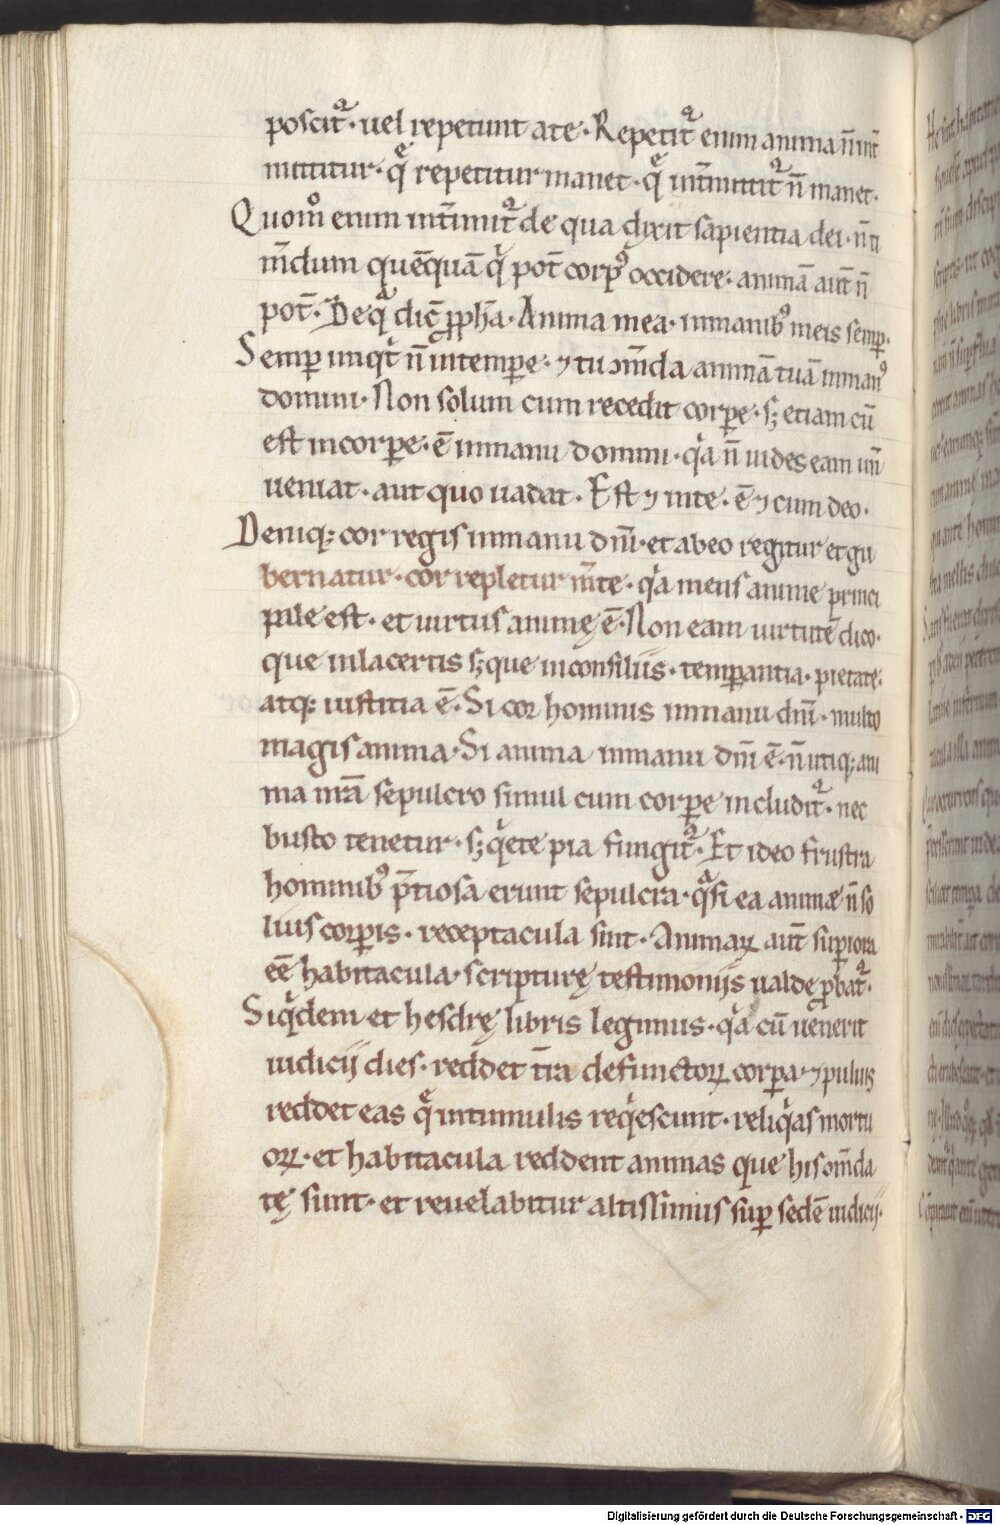 poscit᷑· uel repetunt ate· Repetit᷑ enim anima n̄ int̄
mittitur· q̄ repetitur manet· q̄ int̄mittit᷑ n̄ manet·
Quom̊ enim int̄imit᷑ de qua dixit sapientia dei· n̄ ti
m̄dum quēquā qͥ pot̄ corpꝰ occidere· animā aut̄ n̄
pot̄· De qͣ dic̄ ꝓph̄a· Anima mea· inmanibꝰ meis semꝑ·
Semꝑ inqͥt n̄ intempe· ⁊ tu ɔm̄da animā tuā inmanꝰ
domini· Non solum cum recedit corꝑe· sꝫ etiam cū
est incorꝑe· ē inmanu domini· qͥa n̄ uides eam un̄
ueniat· aut quo uadat· Est ⁊ inte· ē ⁊ cum deo·
Deniqꝫ cor regis inmanu dn̄i· et abeo regitur et gu
bernatur· cor repletur m̄te· qͥa mens anime princi
pale est· et uirtus animę ē· Non eam uirtutē dico·
que inlacertis sꝫ que inconsiliis· temꝑantia· pietate·
atqꝫ iustitia ē· Si cor hominis inmanu dn̄i· multo
magis anima· Si anima inmanu dn̄i ē· n̄ utiqꝫ ani
ma nr̄a sepulcro simul cum corꝑe includit᷑· nec
busto tenetur· sꝫ qͥete pia fungit᷑· Et ideo frustra
hominibꝰ p̄tiosa erunt sepulcra· qͣsi ea animæ n̄ so
lius corꝑis· receptacula sint· Animaꝝ aut̄ suꝑiora
eē habitacula· scripturę testimoniis ualde ꝓbat᷑·
Siqͥdem et hesdrę libris legimus· qͥa cū uenerit
iudicij dies· reddet t̄ra defunctoꝝ corꝑa· ⁊ puluis
reddet eas q̄ intumulis reqͥescunt· reliqͥas mortu
oꝝ· et habitacula reddent animas que his ɔm̄da
tę sunt· et reuelabitur altissimus suꝑ sedē iudicij·
Digitalisierung gefördert durch die Deutsche Forschungsgemeinschaft - DFG